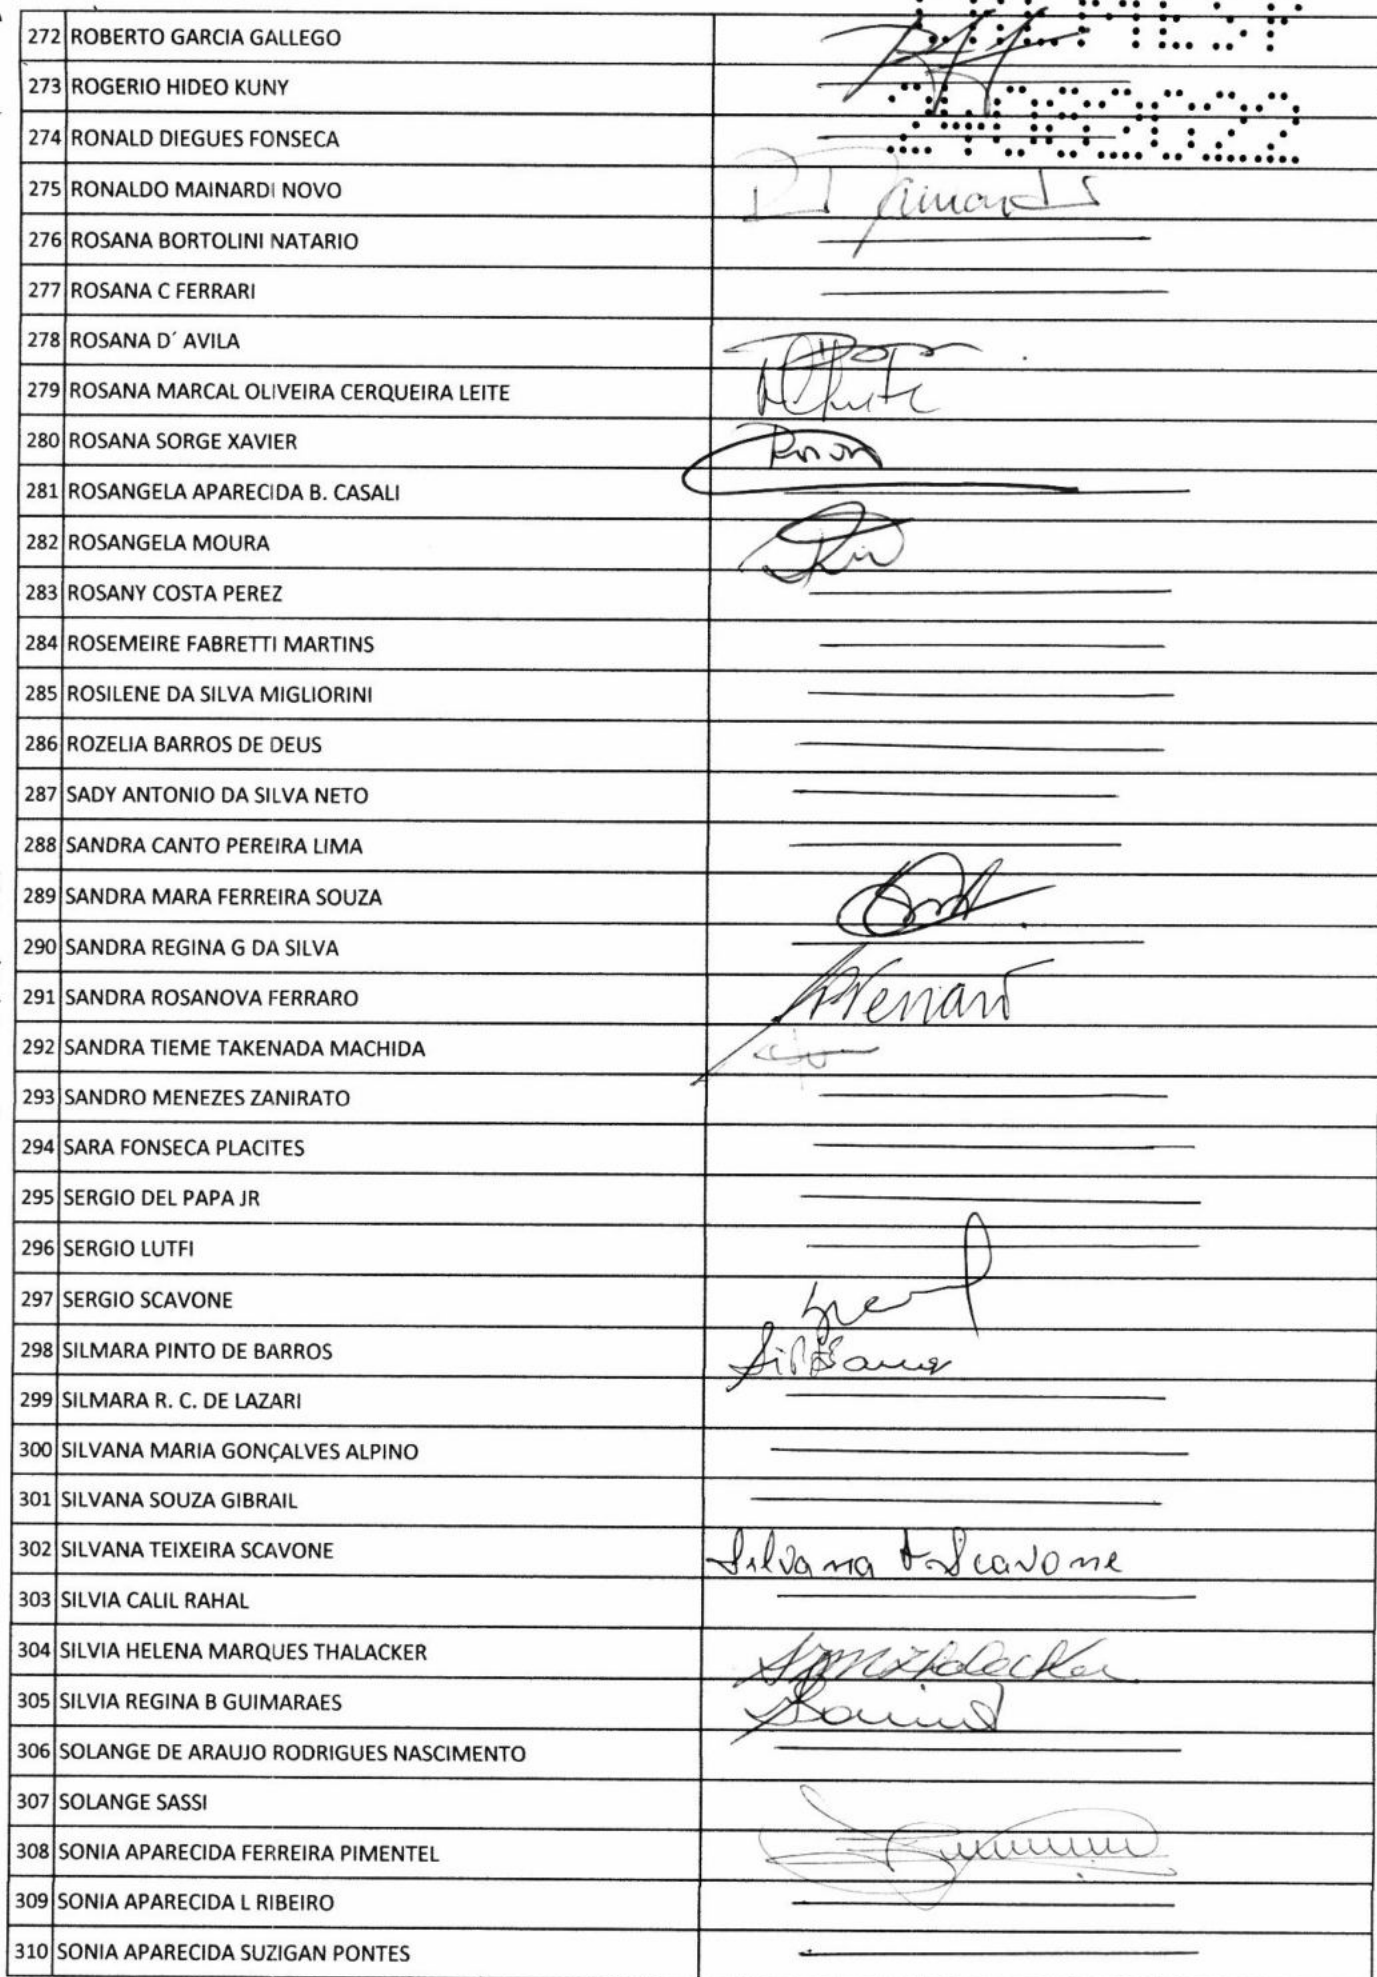 272 ROBERTO GARCIA GALLEGO
273 ROGERIO HIDEO KUNY
274 RONALD DIEGUES FONSECA
275 RONALDO MAINARDI NOVO
276 ROSANA BORTOLINI NATARIO
277 ROSANA C FERRARI
278 ROSANA D´ AVILA
279 ROSANA MARCAL OLIVEIRA CERQUEIRA LEITE
280 ROSANA SORGE XAVIER
281 ROSANGELA APARECIDA B. CASALI
282 ROSANGELA MOURA
283 ROSANY COSTA PEREZ
284 ROSEMEIRE FABRETTI MARTINS
285 ROSILENE DA SILVA MIGLIORINI
286 ROZELIA BARROS DE DEUS
287 SADY ANTONIO DA SILVA NETO
288 SANDRA CANTO PEREIRA LIMA
289 SANDRA MARA FERREIRA SOUZA
290 SANDRA REGINA G DA SILVA
291 SANDRA ROSANOVA FERRARO
292 SANDRA TIEME TAKENADA MACHIDA
293 SANDRO MENEZES ZANIRATO
294 SARA FONSECA PLACITES
295 SERGIO DEL PAPA JR
296 SERGIO LUTFI
297 SERGIO SCAVONE
298 SILMARA PINTO DE BARROS
299 SILMARA R. C. DE LAZARI
300 SILVANA MARIA GONÇALVES ALPINO
301 SILVANA SOUZA GIBRAIL
302 SILVANA TEIXEIRA SCAVONE Silvana T. Scavone
303 SILVIA CALIL RAHAL
304 SILVIA HELENA MARQUES THALACKER
305 SILVIA REGINA B GUIMARAES
306 SOLANGE DE ARAUJO RODRIGUES NASCIMENTO
307 SOLANGE SASSI
308 SONIA APARECIDA FERREIRA PIMENTEL
309 SONIA APARECIDA L RIBEIRO
310 SONIA APARECIDA SUZIGAN PONTES